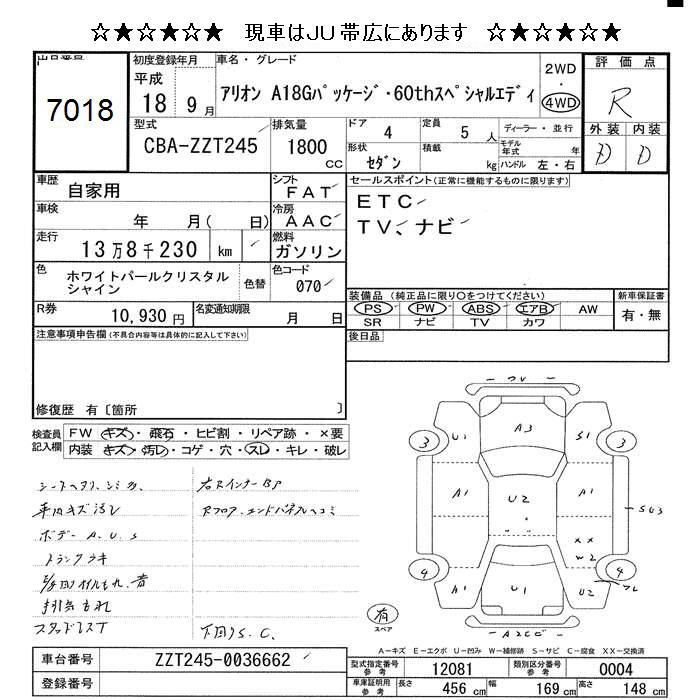 ☆★☆★☆★ 現車はJU帯広にあります ☆★☆★☆★
出品番号
7018
初度登録年月
平成
18 9月
車名・グレード
アリオン A18Gパッケージ・60thスペシャルエディ
2WD
・
4WD
評価点
R
外装 内装
D D
型式
CBA-ZZT245
排気量
1800 CC
ドア 4
定員 5人
形状 セダン
積載 kg
ディーラー・並行
モデル年式 年
ハンドル 左・右
車歴 自家用
シフト FAT
車検 年 月( 日)
冷房 AAC
走行 13万8千230 km
燃料 ガソリン
色 ホワイトパールクリスタルシャイン
色替
色コード 070
R券 10,930円
名変通知期限 月 日
セールスポイント(正常に機能するものに限ります)
ETC
TV、ナビ
装備品 (純正品に限り○をつけてください)
PS PW ABS エアB AW
SR ナビ TV カワ
新車保証書
有・無
後日品
注意事項申告欄(不具合内容等は具体的に記入して下さい)
修復歴 有〔箇所 〕
検査員記入欄
FW キズ・飛石・ヒビ割・リペア跡・×要
内装 キズ・汚レ・コゲ・穴・スレ・キレ・破レ
シートヘタリ、シミ
右RインナーBP
車内キズ汚レ
Rフロア、エンドパネルヘコミ
ボデー A、U、S
トランクラキ
排気もれ
スタッドレスT
下回りS.C.
U1 A3 S1
3 3
A1 U2 A1
S63
×× W2
4 4
A1 U1 U2
A2CC
有
スペア
A-キズ E-エクボ U-凹み W-補修跡 S-サビ C-腐食 XX-交換済
車台番号 ZZT245-0036662
登録番号
型式指定番号 参考 12081
類別区分番号 参考 0004
車庫証明用 参考 長さ 456cm 幅 169cm 高さ 148cm